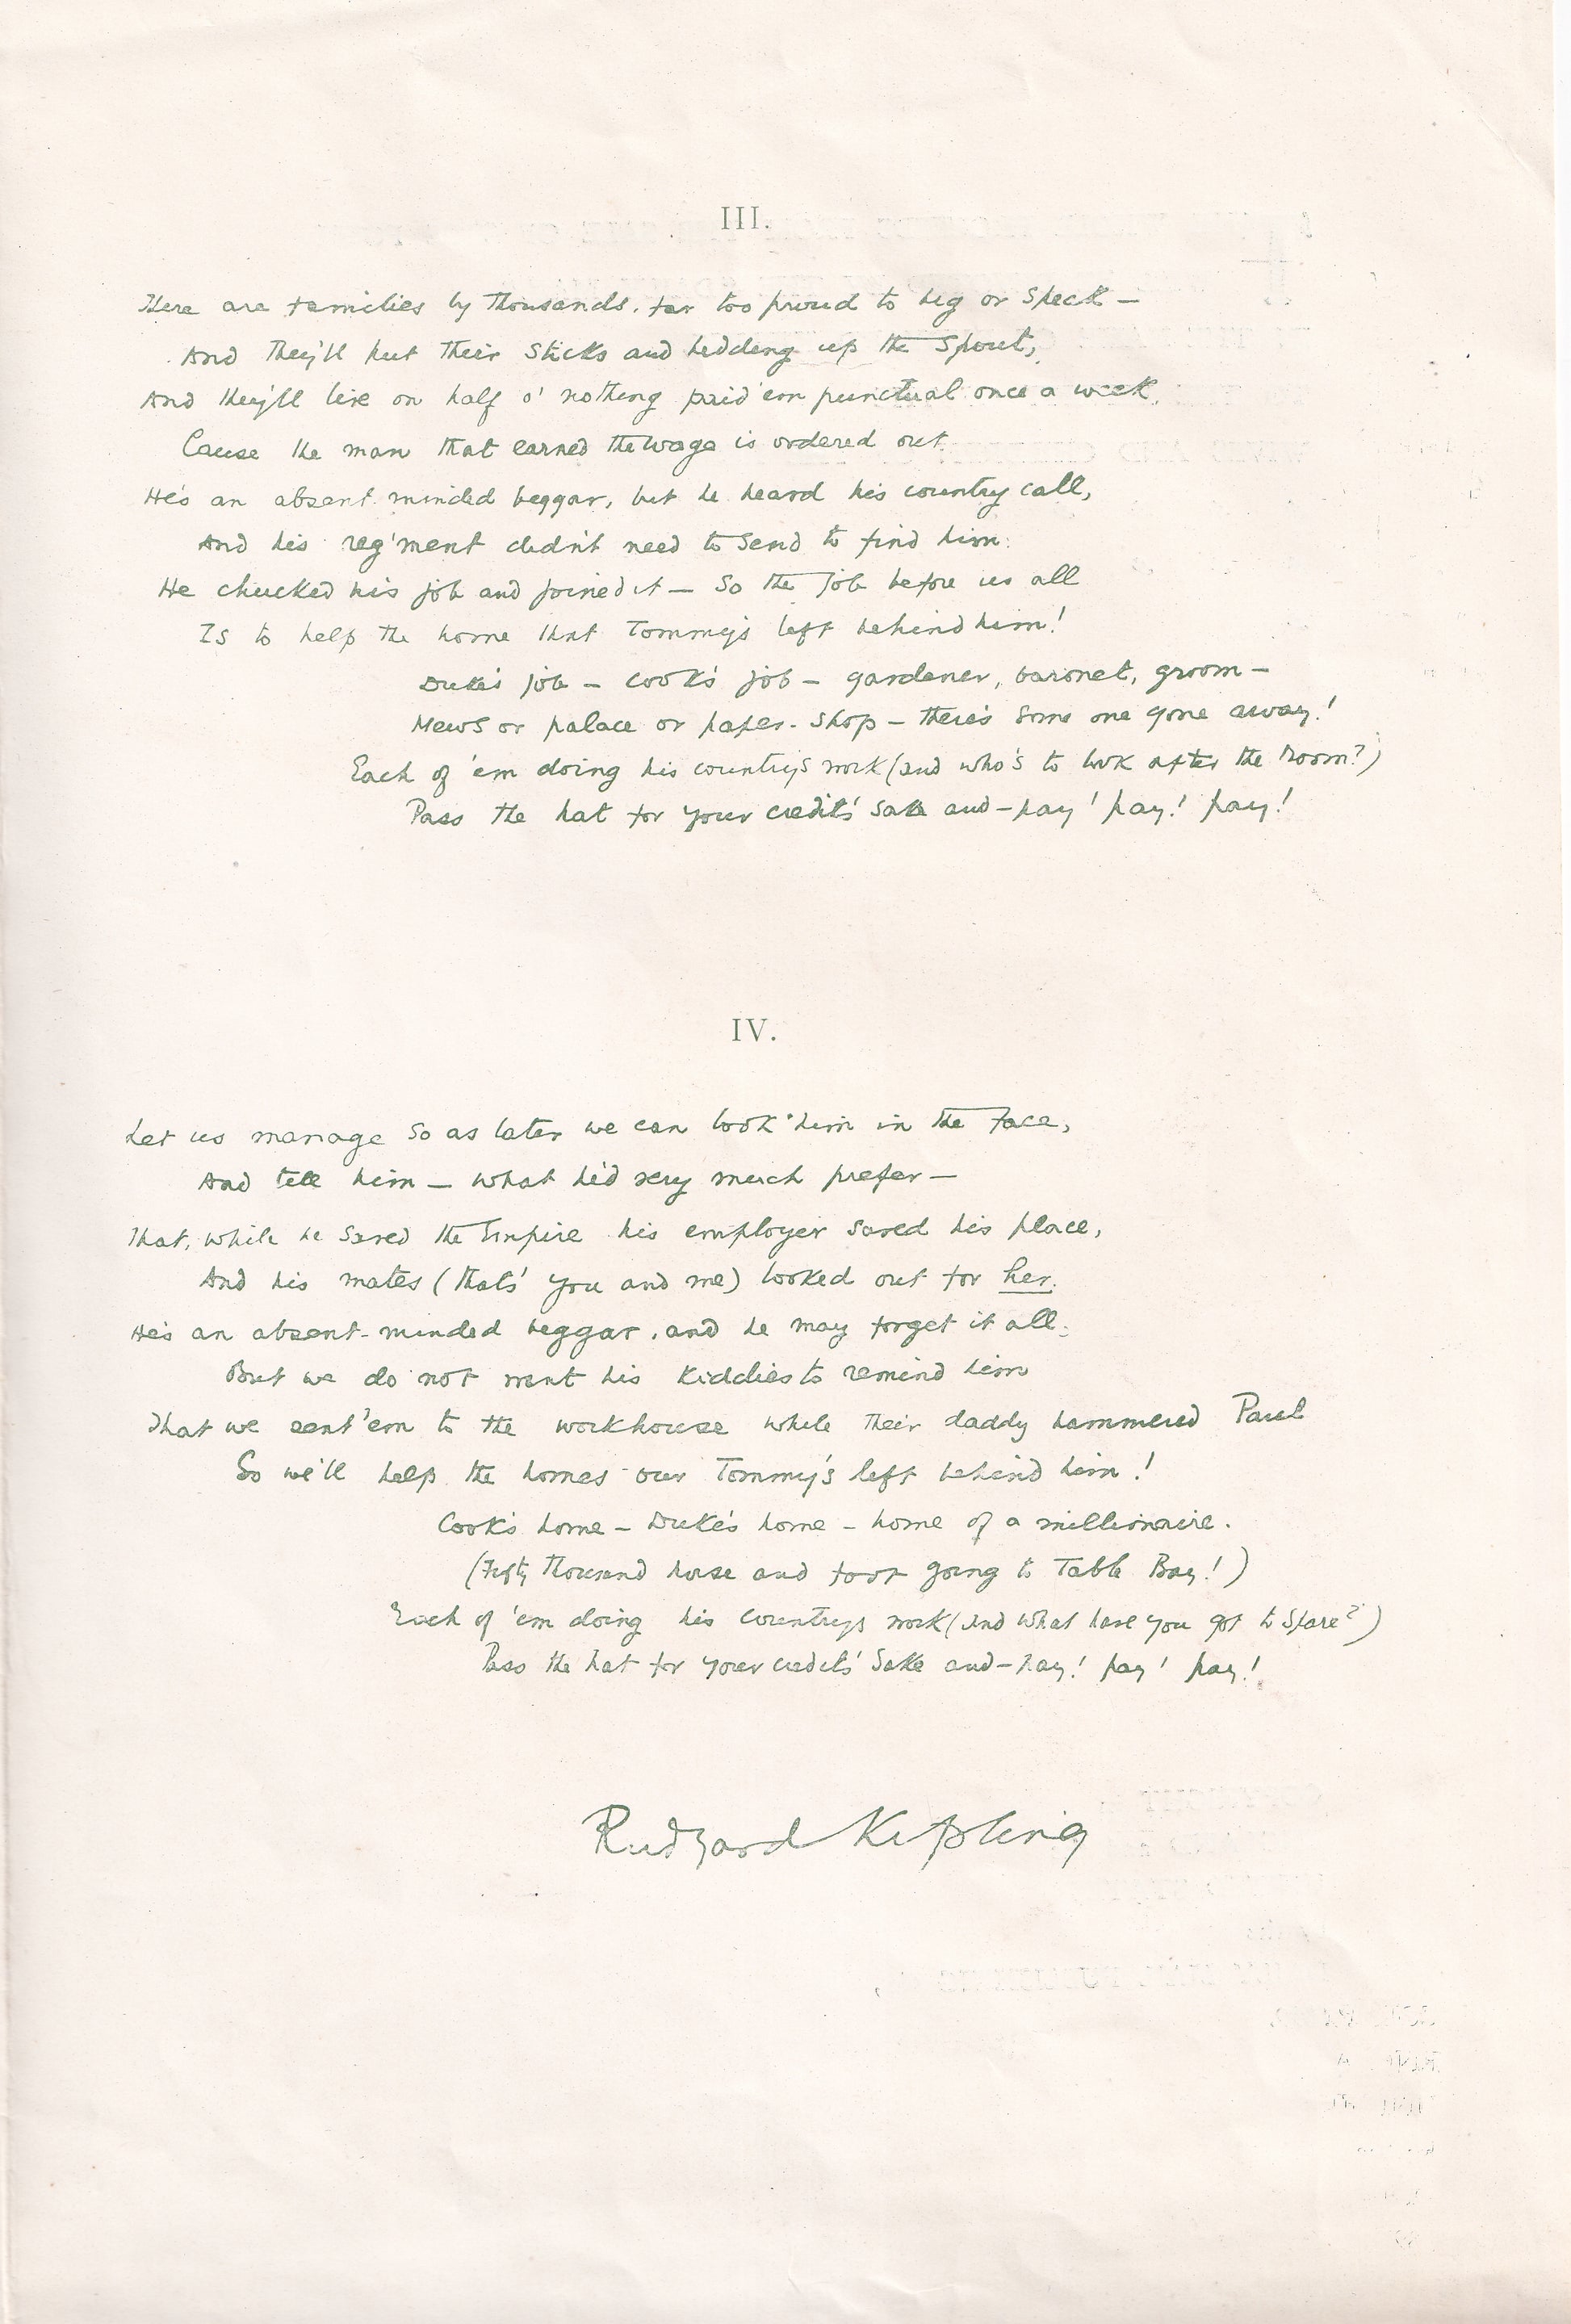 III.
There are families by thousands, far too proud to beg or speak —
And they'll put their sticks and bedding up the spout,
And they'll live on half o' nothing paid 'em punctual once a week,
Cause the man that earned the wage is ordered out.
He's an absent minded beggar, but he heard his country call,
And his reg'ment didn't need to send to find him:
He chucked his job and joined it — so the job before us all
Is to help the home that Tommy's left behind him!
Duke's job — cook's job — gardener, baronet, groom —
Mews or palace or paper-shop — there's some one gone away!
Each of 'em doing his country's work (and who's to look after the room?)
Pass the hat for your credit's sake and — pay! pay! pay!
IV.
Let us manage so as later we can look him in the face,
And tell him — what he'd very much prefer —
That, while he saved the Empire his employer saved his place,
And his mates (that's you and me) looked out for her.
He's an absent-minded beggar, and he may forget it all.
But we do not want his kiddies to remind him
That we sent 'em to the workhouse while their daddy hammered Paul
So we'll help the homes our Tommy's left behind him!
Cook's home — Duke's home — home of a millionaire.
(Fifty thousand horse and foot going to Table Bay!)
Each of 'em doing his country's work (and what have you got to spare?)
Pass the hat for your credit's sake and — pay! pay! pay!
Rudyard Kipling